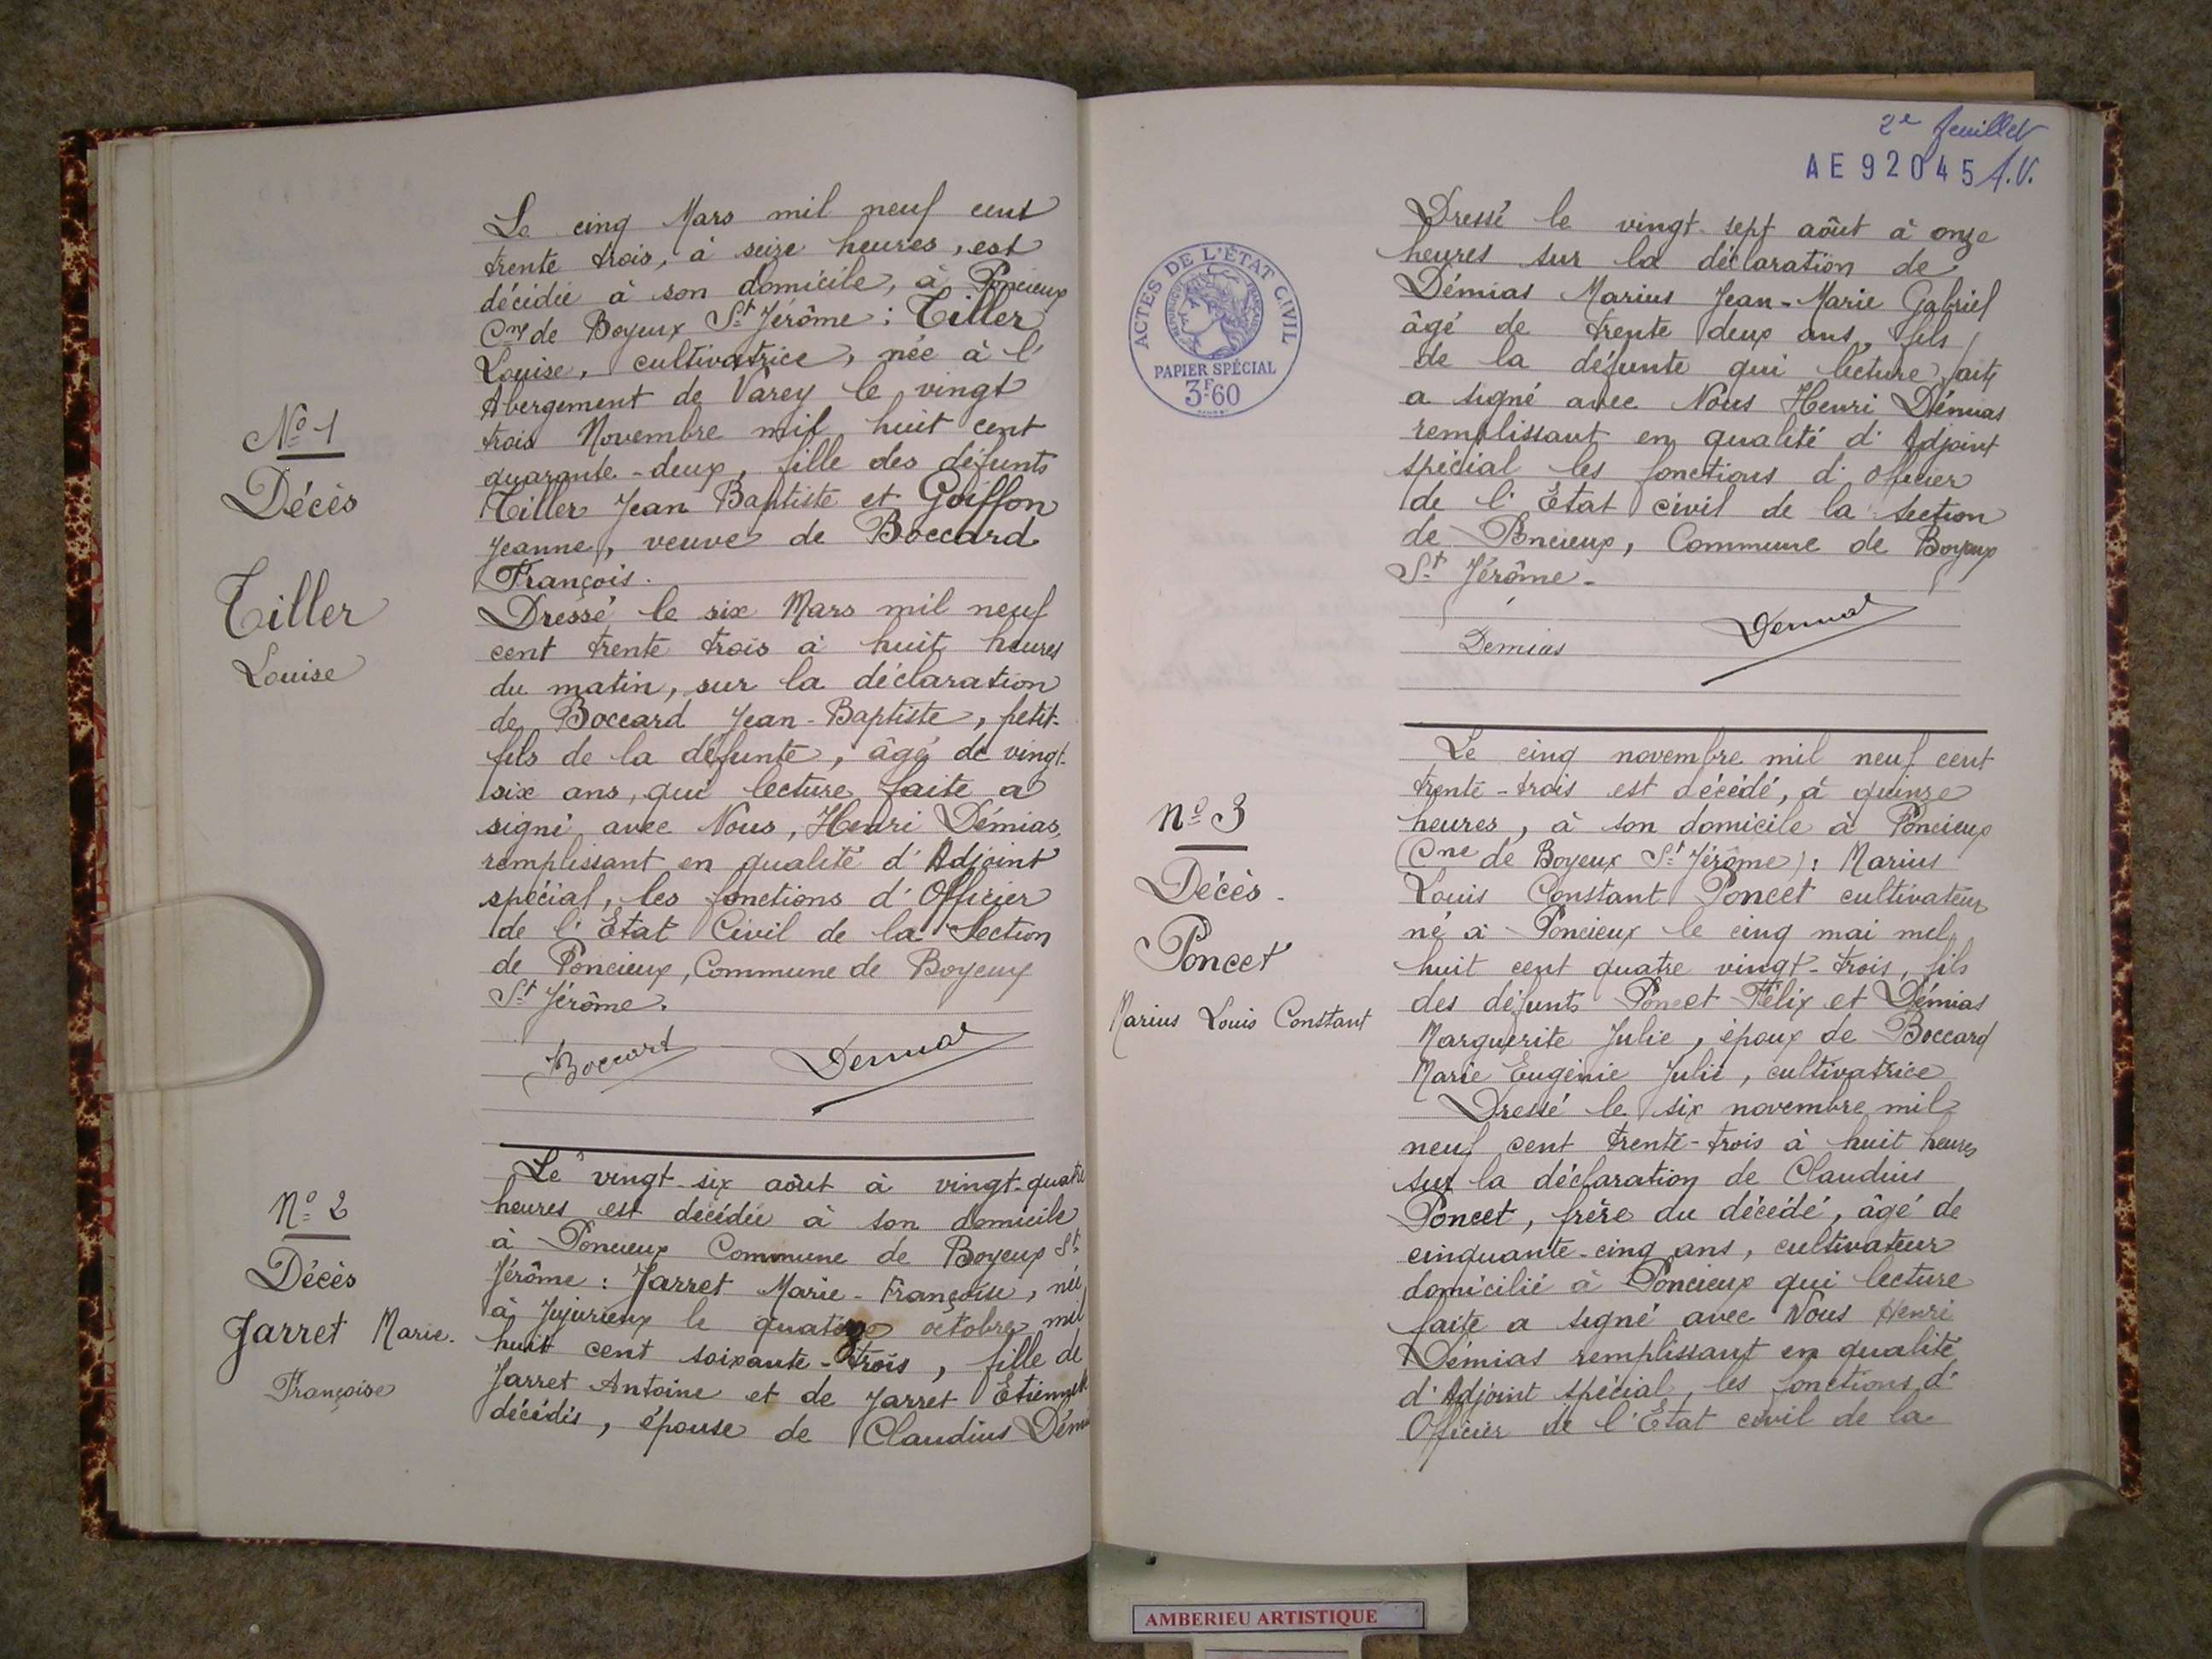 Le cinq Mars mil neuf cent
trente trois, à seize heures, est
décédée à son domicile, à Poncieux
Cne de Boyeux St Jérôme : Tiller
Louise, cultivatrice, née à l'
Abergement de Varey le vingt
trois Novembre mil huit cent
quarante-deux, fille des défunts
Tiller Jean Baptiste et Goiffon
Jeanne, veuve de Boccard
François.
Dressé le six Mars mil neuf
cent trente trois à huit heures
du matin, sur la déclaration
de Boccard Jean-Baptiste, petit-
fils de la défunte, âgé de vingt-
six ans, qui lecture faite a
signé avec Nous, Henri Démias,
remplissant en qualité d'Adjoint
spécial, les fonctions d'Officier
de l'Etat Civil de la Section
de Poncieux, Commune de Boyeux
St Jérôme.
Boccard
Demias
No 1
Décès
Tiller
Louise
Le vingt-six août à vingt-quatre
heures est décédée à son domicile
à Poncieux Commune de Boyeux St
Jérôme : Jarret Marie-Françoise, née
à Jujurieux le quatorze octobre mil
huit cent soixante-trois, fille de
Jarret Antoine et de Jarret Etiennette
décédés, épouse de Claudius Dém
No 2
Décès
Jarret Marie-
Françoise
2e feuillet
AE92045 A.V.
ACTES DE L'ÉTAT CIVIL
RÉPUBLIQUE FRANÇAISE
PAPIER SPÉCIAL
3F60
Dressé le vingt-sept août à onze
heures sur la déclaration de
Démias Marius Jean-Marie Gabriel
âgé de trente deux ans, fils
de la défunte qui lecture faite
a signé avec Nous Henri Démias
remplissant en qualité d'Adjoint
spécial les fonctions d'officier
de l'Etat civil de la Section
de Poncieux, Commune de Boyeux
St Jérôme-
Demias
Demias
No 3
Décès-
Poncet
Marius Louis Constant
Le cinq novembre mil neuf cent
trente-trois est décédé, à quinze
heures, à son domicile à Poncieux
(Cne de Boyeux St Jérôme) : Marius
Louis Constant Poncet cultivateur
né à Poncieux le cinq mai mil
huit cent quatre vingt-trois, fils
des défunts Poncet Félix et Démias
Marguerite Julie, époux de Boccard
Marie Eugénie Julie, cultivatrice
Dressé le six novembre mil
neuf cent trente-trois à huit heures
sur la déclaration de Claudius
Poncet, frère du décédé, âgé de
cinquante-cinq ans, cultivateur
domicilié à Poncieux qui lecture
faite a signé avec Nous Henri
Démias remplissant en qualité
d'Adjoint spécial, les fonctions d'
Officier de l'Etat civil de la
AMBERIEU ARTISTIQUE